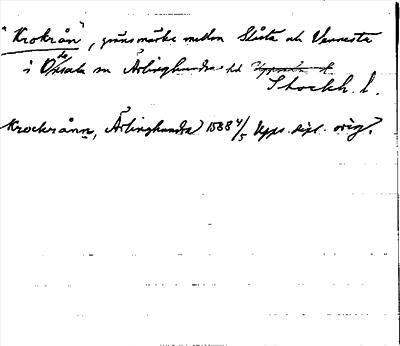 "Krokrån", gränsmärke mellan Slåsta och Vannesta
i Odensala sn Ärlinghundra hd
Stockh. l.
Krockrånn, Ärlinghundra 1588 4/5 Upps. dipl. orig.